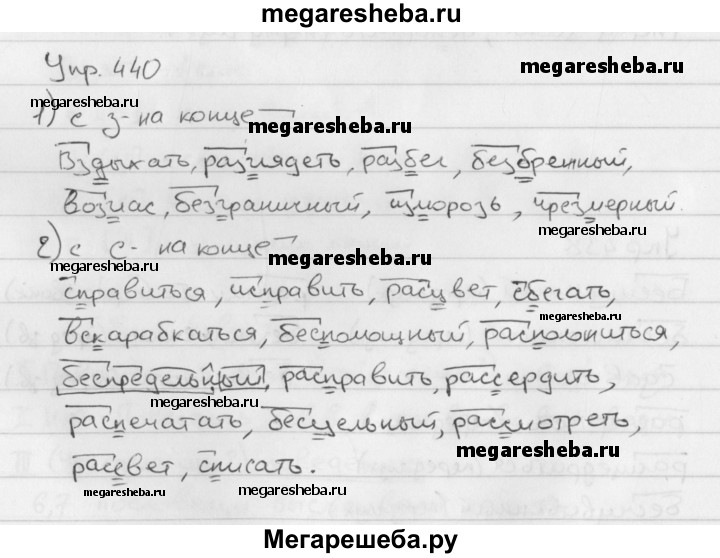 megaresheba.ru
Упр. 440
megaresheba.ru
megaresheba.ru
1) с з- на конце
megaresheba.ru
Вздыхать, разглядеть, разбег, безбрежный,
возглас, безграничный, изморозь, чрезмерный.
2) с с- на конце
megaresheba.ru
megaresheba.ru
справиться, исправить, расцвет, сбегать,
megaresheba.ru
вскарабкаться, беспомощный, расположиться,
беспредельный, расправить, рассердить,
megaresheba.ru
распечатать, бесцельный, рассмотреть,
megaresheba.ru
рассвет, списать.
megaresheba.ru
Мегарешеба.ру